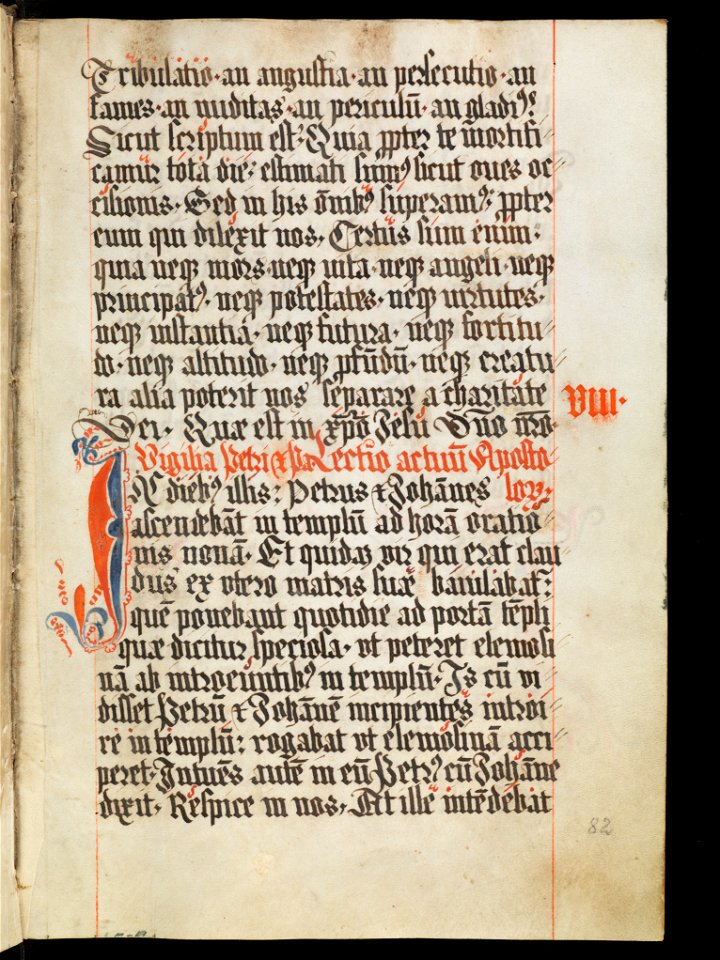 Tribulatiō· an angustia· an persecutio· an
fames· an nuditas· an periculū· an gladiꝰ?
Sicut scriptum est: Quia ꝓpter te mortifi
camur tota die: estimati sumꝰ sicut oues oc
cisionis· Sed in his ōnibꝰ superamꝰ: ꝓpter
eum qui dilexit nos· Certus sum enim·
quia neqꝫ mors· neqꝫ uita· neqꝫ angeli· neqꝫ
principatꝰ· neqꝫ potestates· neqꝫ uirtutes·
neqꝫ instantia· neqꝫ futura· neqꝫ fortitu
do· neqꝫ altitudo· neqꝫ ꝓfūdū· neqꝫ creatu
ra alia poterit nos separare a charitate
VIII·
Dei· Quæ est in xp̄o Jesu Dn̄o nr̄o·
Vigilia Petri & Pa Lectio actuū Aposto
IN diebꝰ illis: Petrus & Johānes loꝝ:
ascendebāt in templū ad horā oratio
nis nonā· Et quidā vir qui erat clau
dus ex vtero matris suæ baiulabat᷑:
quē ponebant quotidie ad portā tēpli
quæ dicitur speciosa· vt peteret elemosi
nā ab introeuntibꝰ in templū· Is cū vi
disset Petrū & Johānē incipientes introi
re in templū: rogabat vt elemosinā acci
peret· Intuēs autē in eū Petrꝰ cū Johāne
dixit· Respice in nos· At ille intēdebat
82